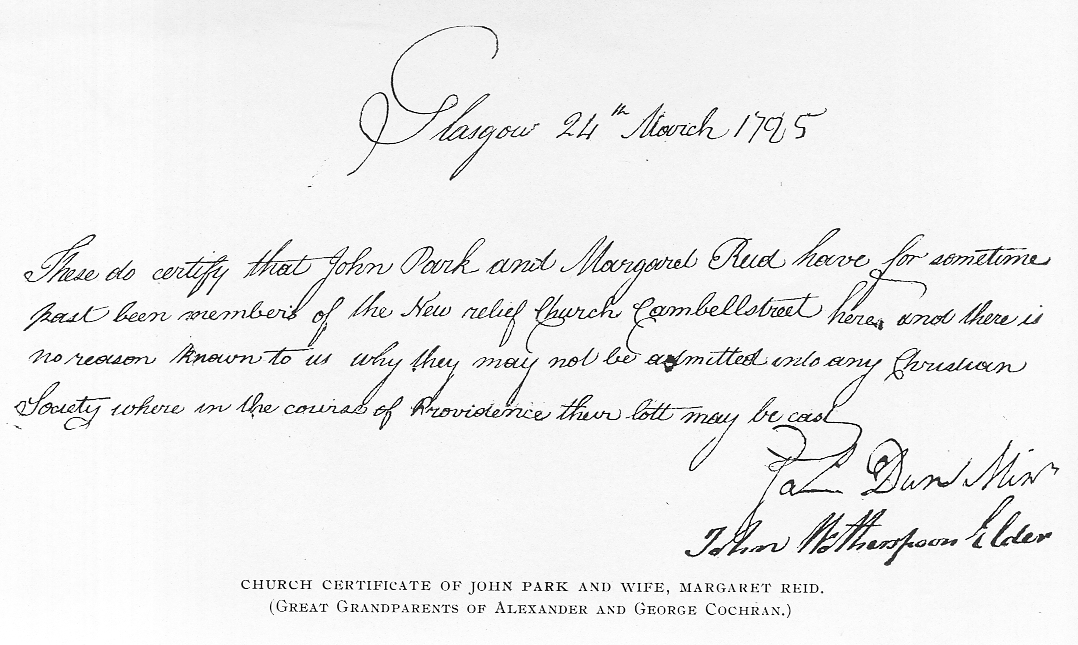 Glasgow 24th March 1795
These do certify that John Park and Margaret Reid have for sometime
past been members of the New relief Church Cambellstreet here, and there is
no reason known to us why they may not be admitted into any Christian
Society where in the course of Providence their lott may be cast
Dun Minr
John Wotherspoon Elder
CHURCH CERTIFICATE OF JOHN PARK AND WIFE, MARGARET REID.
(GREAT GRANDPARENTS OF ALEXANDER AND GEORGE COCHRAN.)